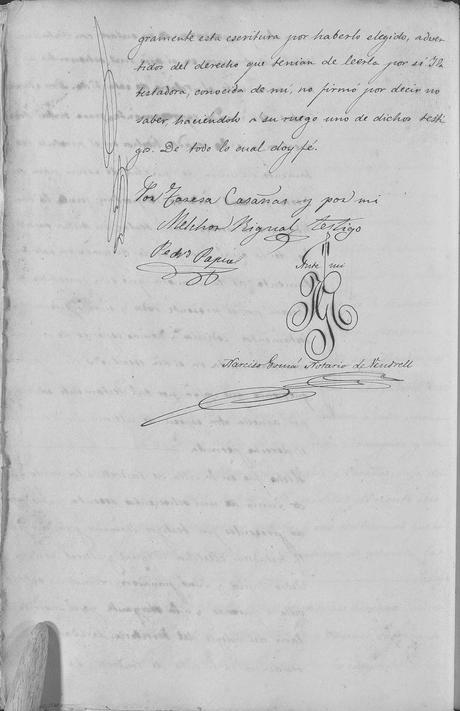 gramente esta escritura por haberlo elegido, adver-
tidos del derecho que tenian de leerla por si. La
testadora, conocida de mi, no firmó por decir no
saber, haciéndolo a su ruego uno de dichos testi-
gos. De todo lo cual doy fé.
Por Teresa Casañas y por mi
Melchor Rigual testigo
Pedro Papiol
Ante mi
Narciso Gomá Notario de Vendrell